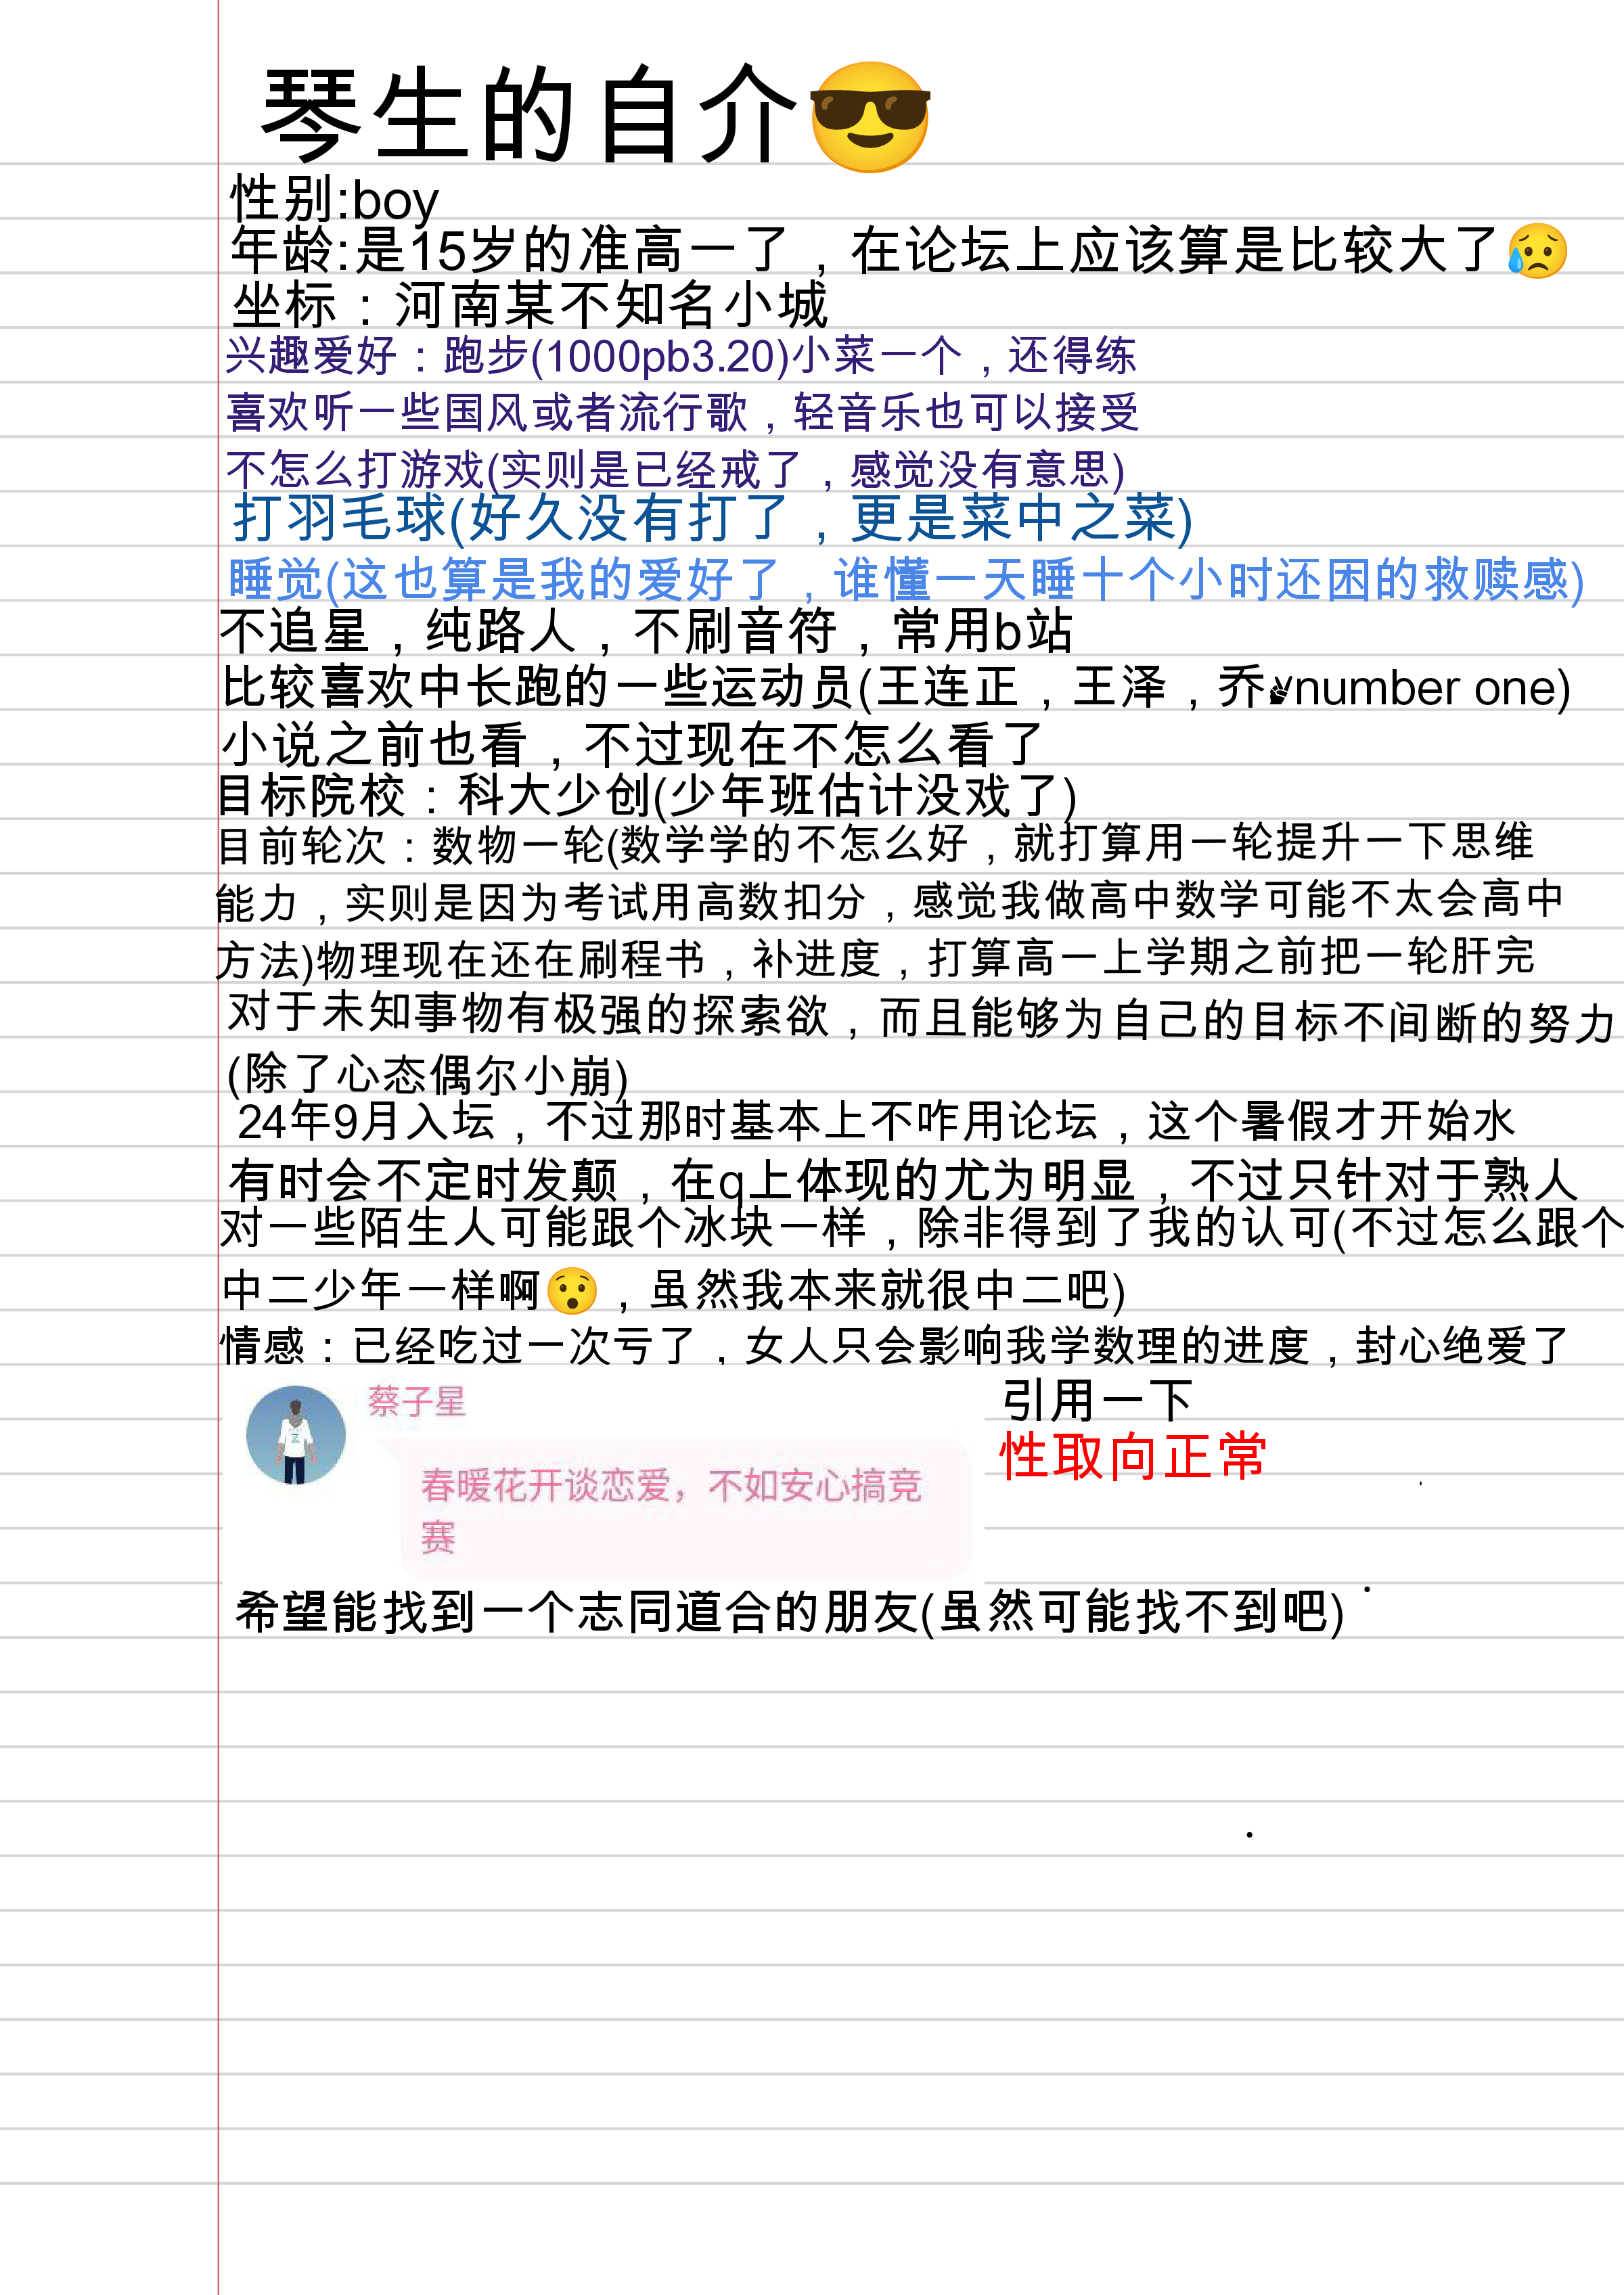 琴生的自介😎
性别:boy
年龄:是15岁的准高一了，在论坛上应该算是比较大了😥
坐标：河南某不知名小城
兴趣爱好：跑步(1000pb3.20)小菜一个，还得练
喜欢听一些国风或者流行歌，轻音乐也可以接受
不怎么打游戏(实则是已经戒了，感觉没有意思)
打羽毛球(好久没有打了，更是菜中之菜)
睡觉(这也算是我的爱好了，谁懂一天睡十个小时还困的救赎感)
不追星，纯路人，不刷音符，常用b站
比较喜欢中长跑的一些运动员(王连正，王泽，乔✌number one)
小说之前也看，不过现在不怎么看了
目标院校：科大少创(少年班估计没戏了)
目前轮次：数物一轮(数学学的不怎么好，就打算用一轮提升一下思维
能力，实则是因为考试用高数扣分，感觉我做高中数学可能不太会高中
方法)物理现在还在刷程书，补进度，打算高一上学期之前把一轮肝完
对于未知事物有极强的探索欲，而且能够为自己的目标不间断的努力
(除了心态偶尔小崩)
24年9月入坛，不过那时基本上不咋用论坛，这个暑假才开始水
有时会不定时发颠，在q上体现的尤为明显，不过只针对于熟人
对一些陌生人可能跟个冰块一样，除非得到了我的认可(不过怎么跟个
中二少年一样啊😯，虽然我本来就很中二吧)
情感：已经吃过一次亏了，女人只会影响我学数理的进度，封心绝爱了
蔡子星
春暖花开谈恋爱，不如安心搞竞
赛
引用一下
性取向正常
希望能找到一个志同道合的朋友(虽然可能找不到吧)